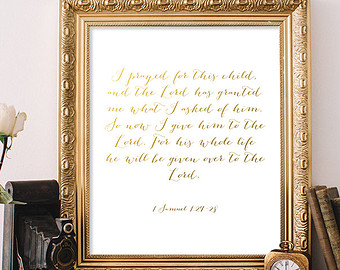 I prayed for this child,
and the Lord has granted
me what I asked of him.
So now I give him to the
Lord. For his whole life
he will be given over to the
Lord.
1 Samuel 1:27-28